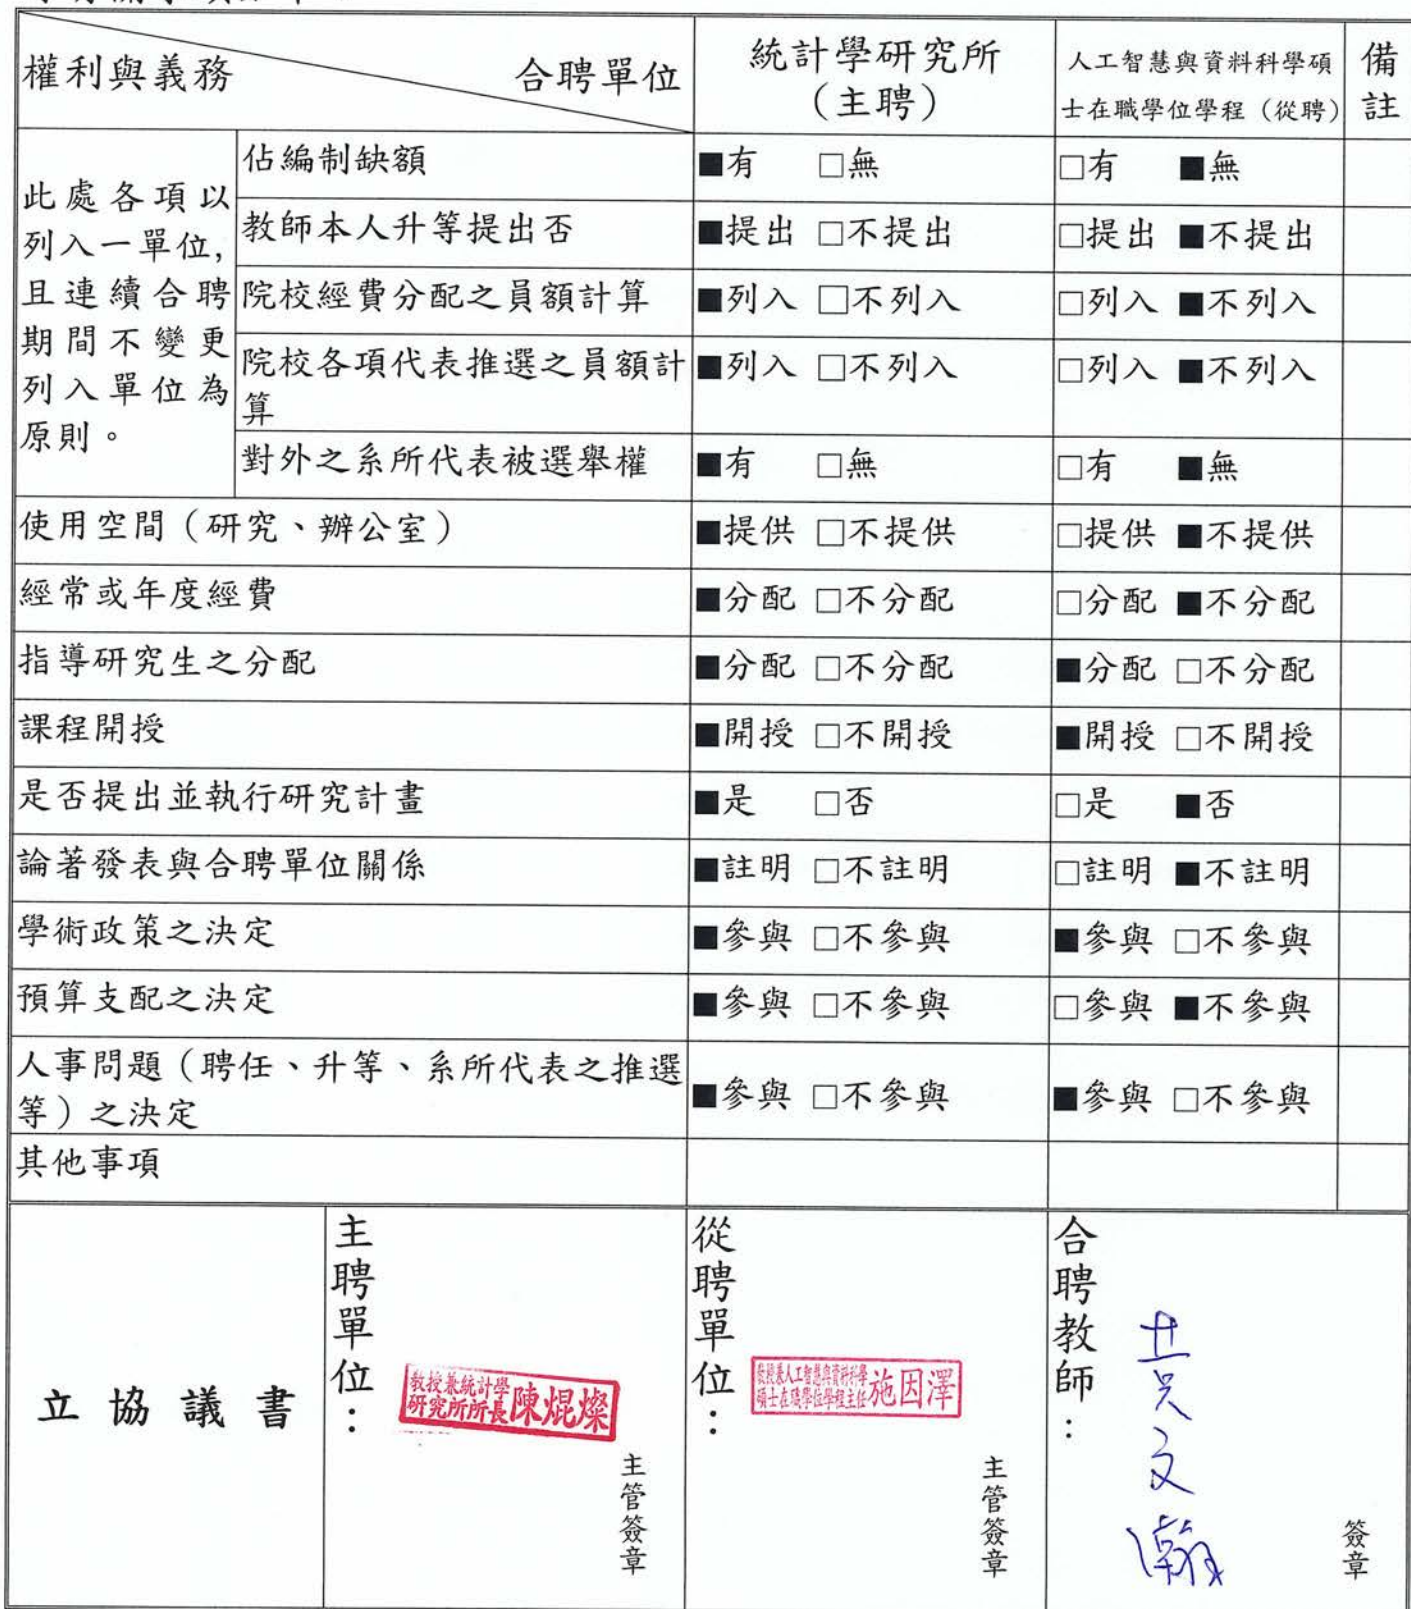 權利與義務 合聘單位 統計學研究所（主聘） 人工智慧與資料科學碩士在職學位學程（從聘） 備註
此處各項以列入一單位，且連續合聘期間不變更列入單位為原則。
佔編制缺額 ■有 □無 □有 ■無
教師本人升等提出否 ■提出 □不提出 □提出 ■不提出
院校經費分配之員額計算 ■列入 □不列入 □列入 ■不列入
院校各項代表推選之員額計算 ■列入 □不列入 □列入 ■不列入
對外之系所代表被選舉權 ■有 □無 □有 ■無
使用空間（研究、辦公室） ■提供 □不提供 □提供 ■不提供
經常或年度經費 ■分配 □不分配 □分配 ■不分配
指導研究生之分配 ■分配 □不分配 ■分配 □不分配
課程開授 ■開授 □不開授 ■開授 □不開授
是否提出並執行研究計畫 ■是 □否 □是 ■否
論著發表與合聘單位關係 ■註明 □不註明 □註明 ■不註明
學術政策之決定 ■參與 □不參與 ■參與 □不參與
預算支配之決定 ■參與 □不參與 □參與 ■不參與
人事問題（聘任、升等、系所代表之推選等）之決定 ■參與 □不參與 ■參與 □不參與
其他事項
立協議書
主聘單位：
教授兼統計學
研究所所長陳焜燦
主管簽章
從聘單位：
教授兼人工智慧與資料科學
碩士在職學位學程主任施因澤
主管簽章
合聘教師：
文瀚
簽章